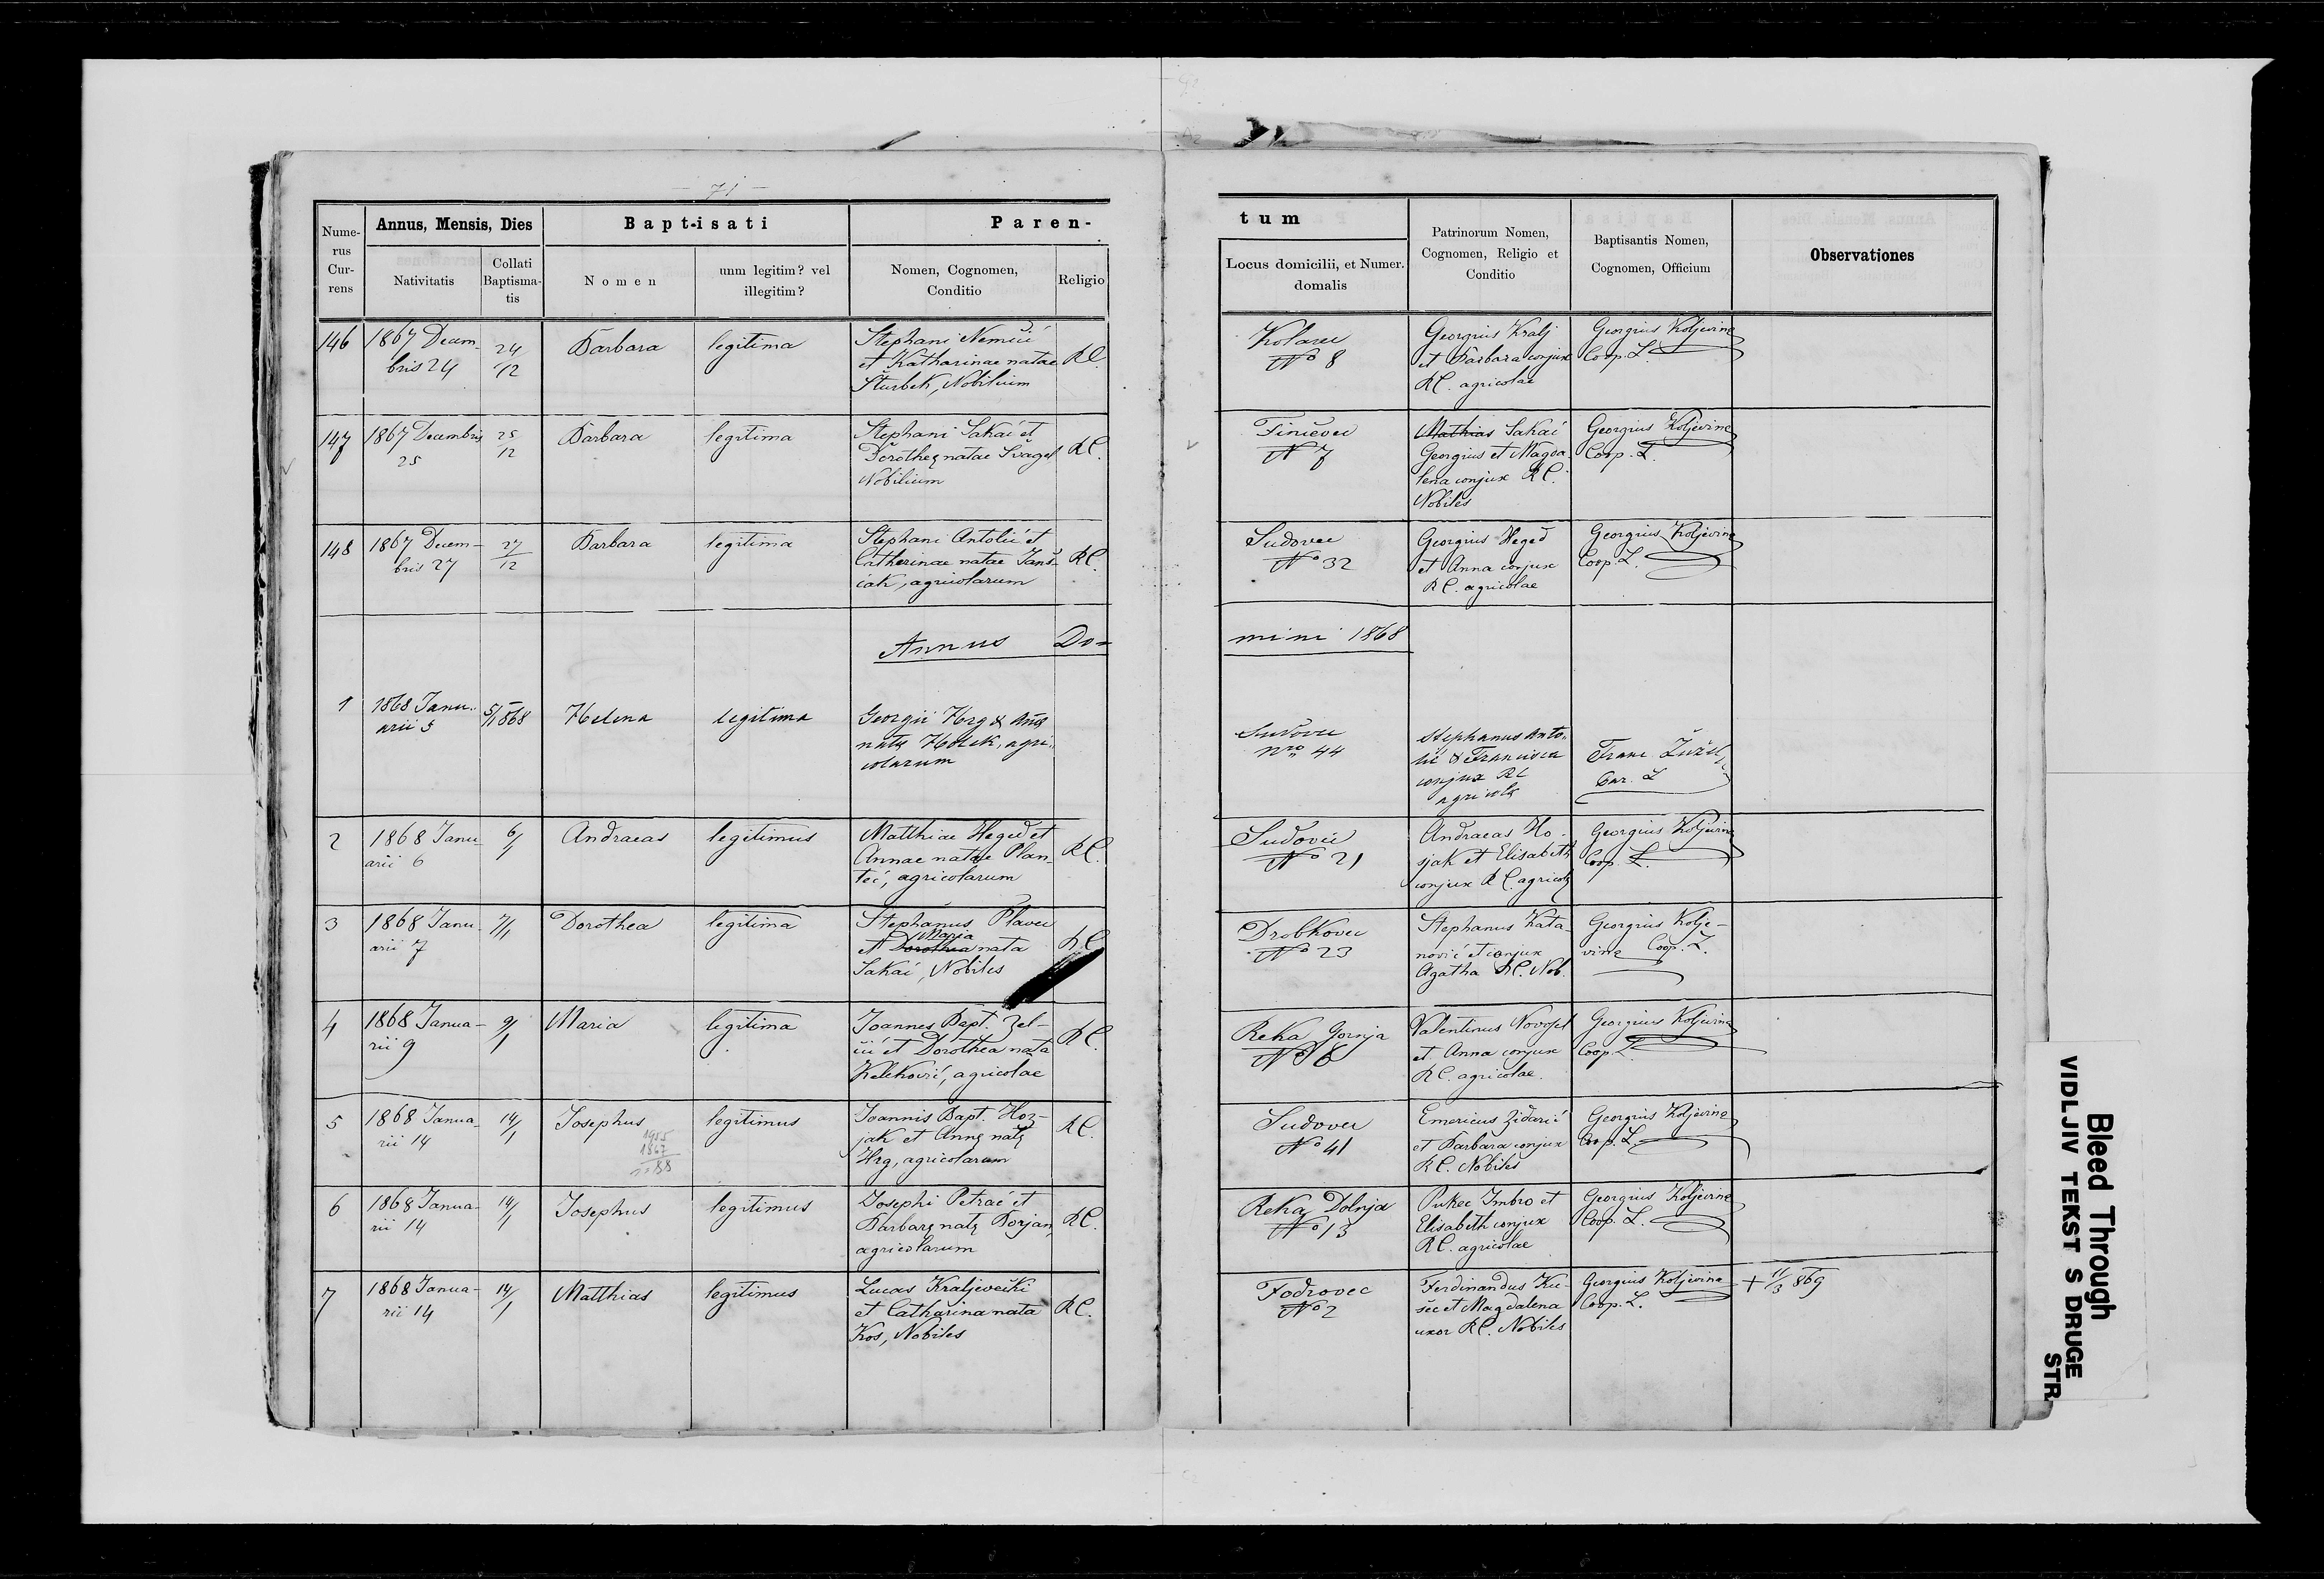 — 71 —
Nume-
rus
Cur-
rens
Annus, Mensis, Dies
Nativitatis
Collati
Baptisma-
tis
Baptisati
Nomen
num legitim? vel
illegitim?
Paren-
Nomen, Cognomen,
Conditio
Religio
tum
Locus domicilii, et Numer.
domalis
Patrinorum Nomen,
Cognomen, Religio et
Conditio
Baptisantis Nomen,
Cognomen, Officium
Observationes
146
1867 Decem-
bris 24
24
12
Barbara
legitima
Stephani Nemčić
et Katharinae natae
Šturbek, Nobilium
RC.
Kolarec
No 8
Georgius Kralj
et Barbara conjux
RC. agricolae
Georgius Koljevina
Coop. L.
147
1867 Decembris
25
25
12
Barbara
legitima
Stephani Sakač et
Dorotheę natae Švagel
Nobilium
RC.
Finčevec
N 7
Mathias Sakač
Georgius et Magda
lena conjux RC.
Nobiles
Georgius Koljevina
Coop. L.
148
1867 Decem-
bris 27
27
12
Barbara
legitima
Stephani Antolić et
Catherinae natae Janš-
cak, agricolarum
RC.
Sudovec
No 32
Georgius Heged
et Anna conjux
RC. agricolae
Georgius Koljevina
Coop. L.
Annus Do=
mini 1868
1
1868 Janu..
arii 5
5/1 868
Helena
legitima
Georgii Hrg &
natę agri..
colarum
Sudovec
nro 44
Stephanus Anto..
lić & Francisca
conjux RC
agricolę
Franc
Par. L
2
1868 Janu
arii 6
6/1
Andraeas
legitimus
Matthiae Heged et
Annae natae Plan-
teć, agricolarum
RC.
Sudovec
No 21
Andraeas Ho-
sjak et Elisabeth
conjux RC. agricolę
Georgius Koljevina
Coop. L.
3
1868 Janu-
arii 7
7/1
Dorothea
legitima
Stephanus Plavec
Maria
et Dorothea nata
Sakač, Nobiles
RC
Drobkovec
No 23
Stephanus Kata-
nović et conjux
Agatha RC. Nob.
Georgius Kolje-
vina Coop. L.
4
1868 Janua-
rii 9
9/1
Maria
legitima
Joannes Bapt. Zel-
čić et Dorothea nata
Keleković, agricolae
RC.
Reka Gornja
No 6
Valentinus Novosel
et Anna conjux
RC. agricolae.
Georgius Koljevina
Coop. L.
5
1868 Janua-
rii 14
14/1
Josephus
1955
1867
88
legitimus
Joannis Bapt. Hoz-
jak et Annę natę
Hrg, agricolarum
RC.
Sudovec
No 41
Emericus Židarić
et Barbara conjux
RC. Nobiles
Georgius Koljevina
Coop. L.
6
1868 Janua-
rii 14
14/1
Josephus
legitimus
Josephi Petrač et
Barbarę natę Borjan,
agricolarum
RC.
Reka Dolnja
No 13
Pukec Imbro et
Elisabeth conjux
RC. agricolae
Georgius Koljevina
Coop. L.
7
1868 Janua-
rii 14
14/1
Matthias
legitimus
Lucas Kraljevečki
et Catharina nata
Kos, Nobiles
RC.
Fodrovec
No 2
Ferdinandus Ku-
šec et Magdalena
uxor RC. Nobiles
Georgius Koljevina
Coop. L.
+ 11/3 869
Bleed Through
VIDLJIV TEKST S DRUGE
STR